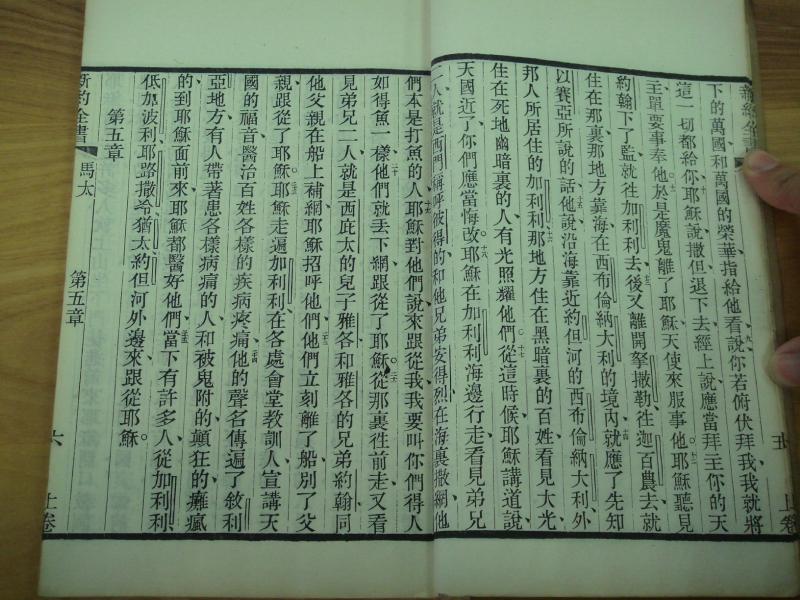 新約全書
下的萬國和萬國的榮華指給他看說你若俯伏拜我我就將
這一切都給你耶穌說撒但退下去經上說應當拜主你的天
主單要事奉他於是魔鬼離了耶穌天使來服事他耶穌聽見
約翰下了監就徃加利利去後又離開拏撒勒徃迦百農去就
住在那裏那地方靠海在西布倫納大利的境內就應了先知
以賽亞所說的話他說沿海靠近約但河的西布倫納大利外
邦人所居住的加利利那地方住在黑暗裏的百姓看見大光
住在死地幽暗裏的人有光照耀他們從這時候耶穌講道說
天國近了你們應當悔改耶穌在加利利海邊行走看見弟兄
二人就是西門稱呼彼得的和他兄弟安得烈在海裏撒網他
們本是打魚的人耶穌對他們說來跟從我我要叫你們得人
如得魚一樣他們就丟下網跟從了耶穌從那裏徃前走又看
見弟兄二人就是西庇太的兒子雅各和雅各的兄弟約翰同
他父親在船上補網耶穌招呼他們他們立刻離了船別了父
親跟從了耶穌耶穌走遍加利利在各處會堂教訓人宣講天
國的福音醫治百姓各樣的疾病疼痛他的聲名傳遍了敘利
亞地方有人帶著患各樣病痛的人和被鬼附的顛狂的癱瘋
的到耶穌面前來耶穌都醫好他們當下有許多人從加利利
低加波利耶路撒冷猶太約但河外邊來跟從耶穌。
第五章
新約全書 馬太 第五章 六 上卷